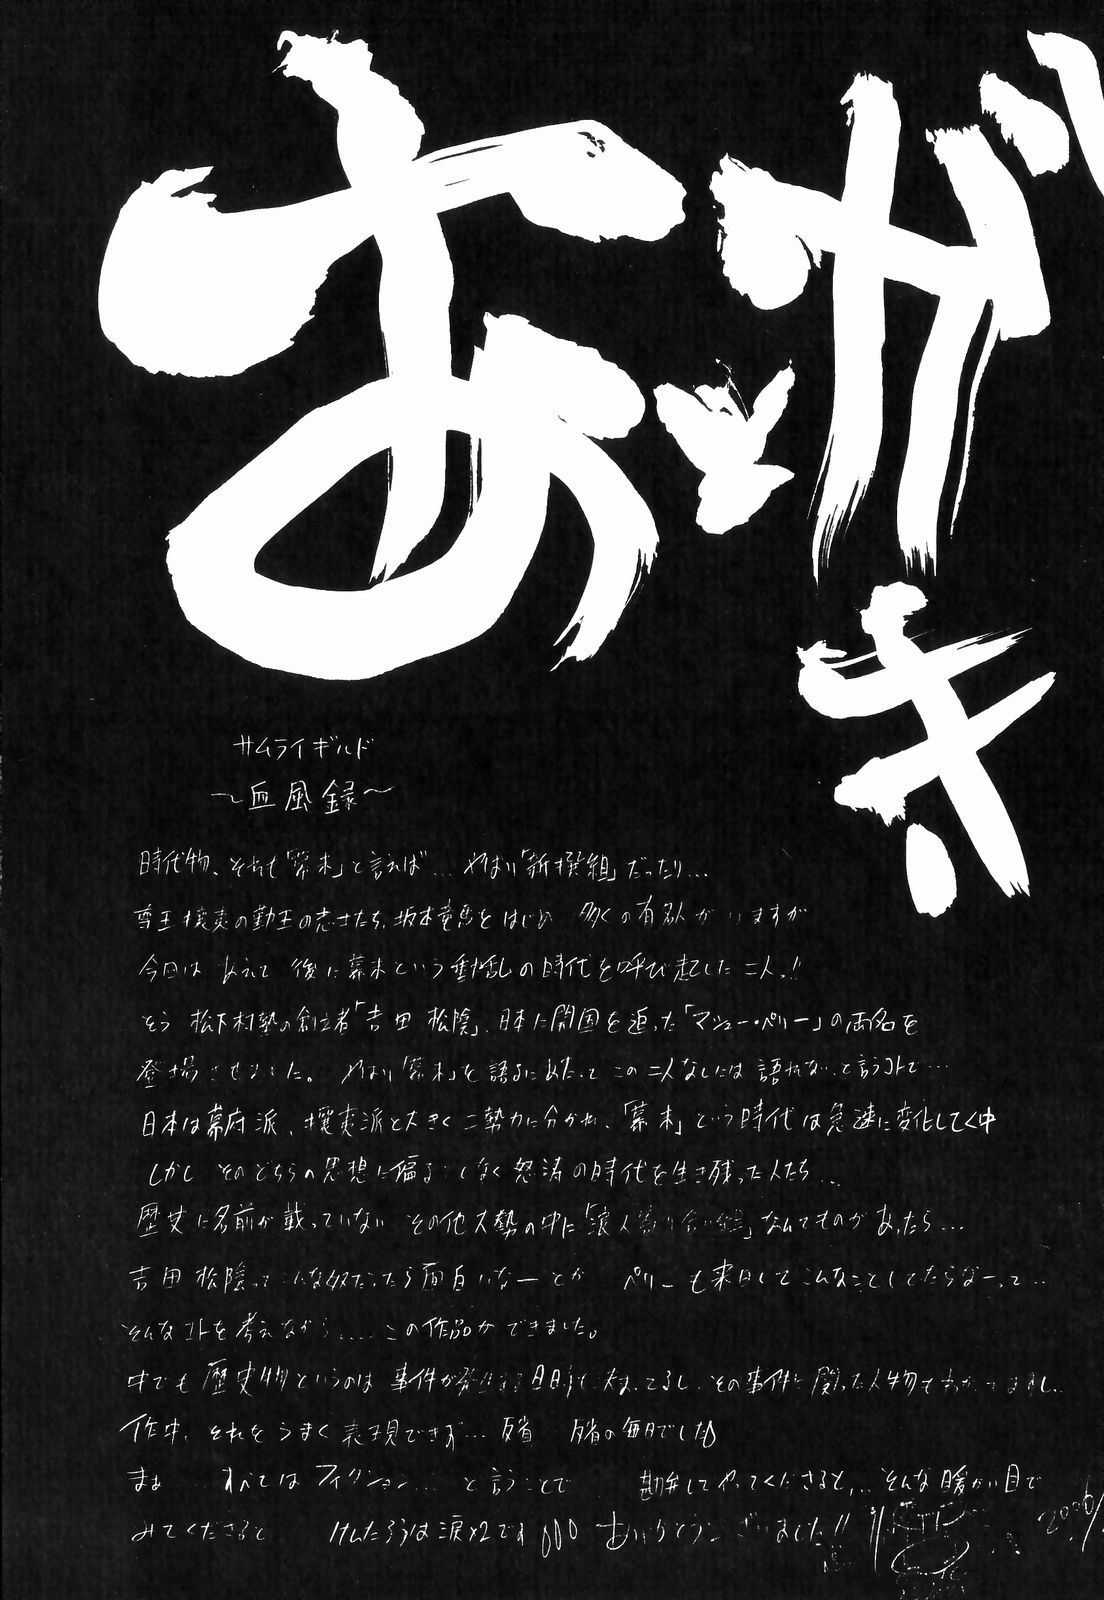 あとがき
サムライギルド
～血風録～
時代物、それも「幕末」と言えば… やはり「新撰組」だったり…
尊王攘夷の勤王の志士たち、坂本竜馬をはじめ 多くの有名人がいますが
今回は あえて 後に幕末という動乱の時代を呼び起した二人っ!!
そう 松下村塾の創立者「吉田 松陰」、日本に開国を迫った「マシュー・ペリー」の両名を
登場させました。 やはり「幕末」を語るにあたって この二人なしには 語れないっと言うコトで…
日本は幕府派、攘夷派と大きく二勢力に分かれ、「幕末」という時代は急速に変化してく中
しかし そのどちらの思想に偏ることなく 怒涛の時代を生き残った人たち…
歴史に名前が載っていない その他大勢の中に「浪人寄り合い」なんてものがあったら…
吉田 松陰ってこんな奴だったら面白いなーとか ペリーも来日してこんなことしてたらなーって‥
そんなコトを考えながら…. この作品ができました。
中でも 歴史物というのは 事件が発生する日時も決まってるし、その事件に関った人物もわかってますし、
作中、それをうまく表現できず… 反省 反省の毎日でした
まぁ… すべては フィクション… と言うことで 勘弁してやってくださると… そんな暖かい目で
みてくださると けんたろうは涙×2です ありがとうございました!!
2006/